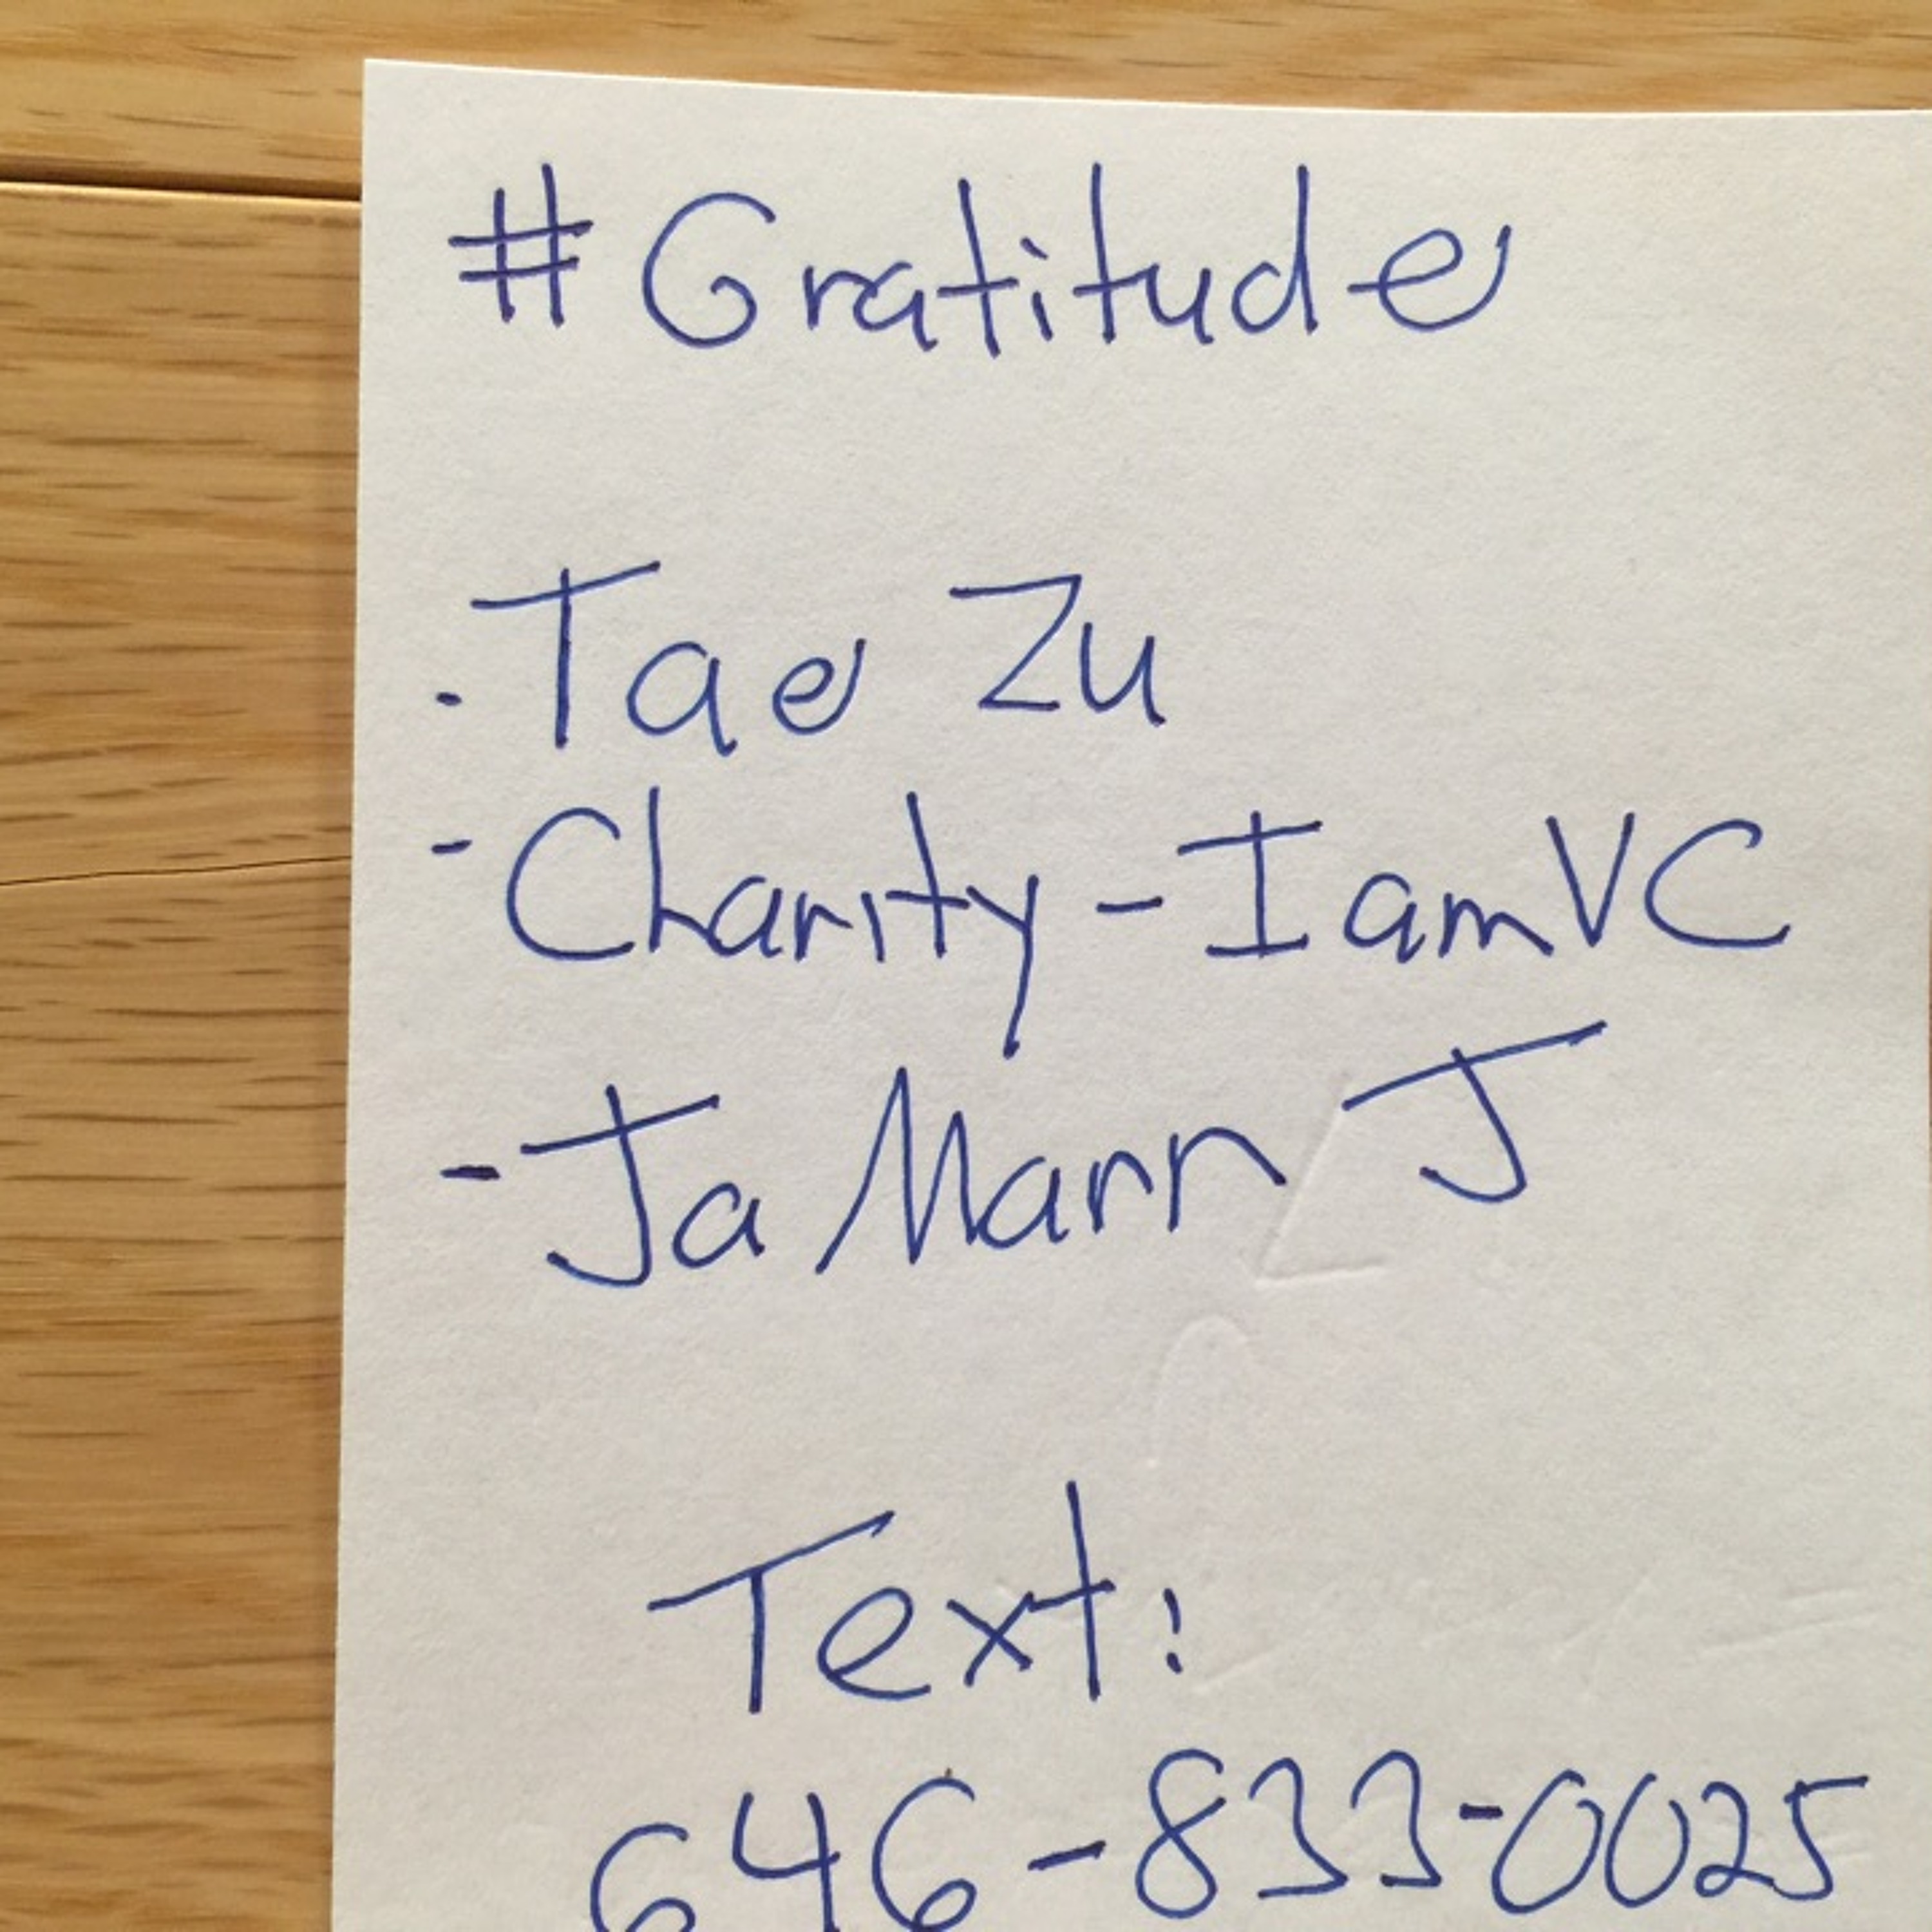 #Gratitude
- Tae Zu
- Charity - I am VC
- Ja Mann J
Text:
646-833-0025